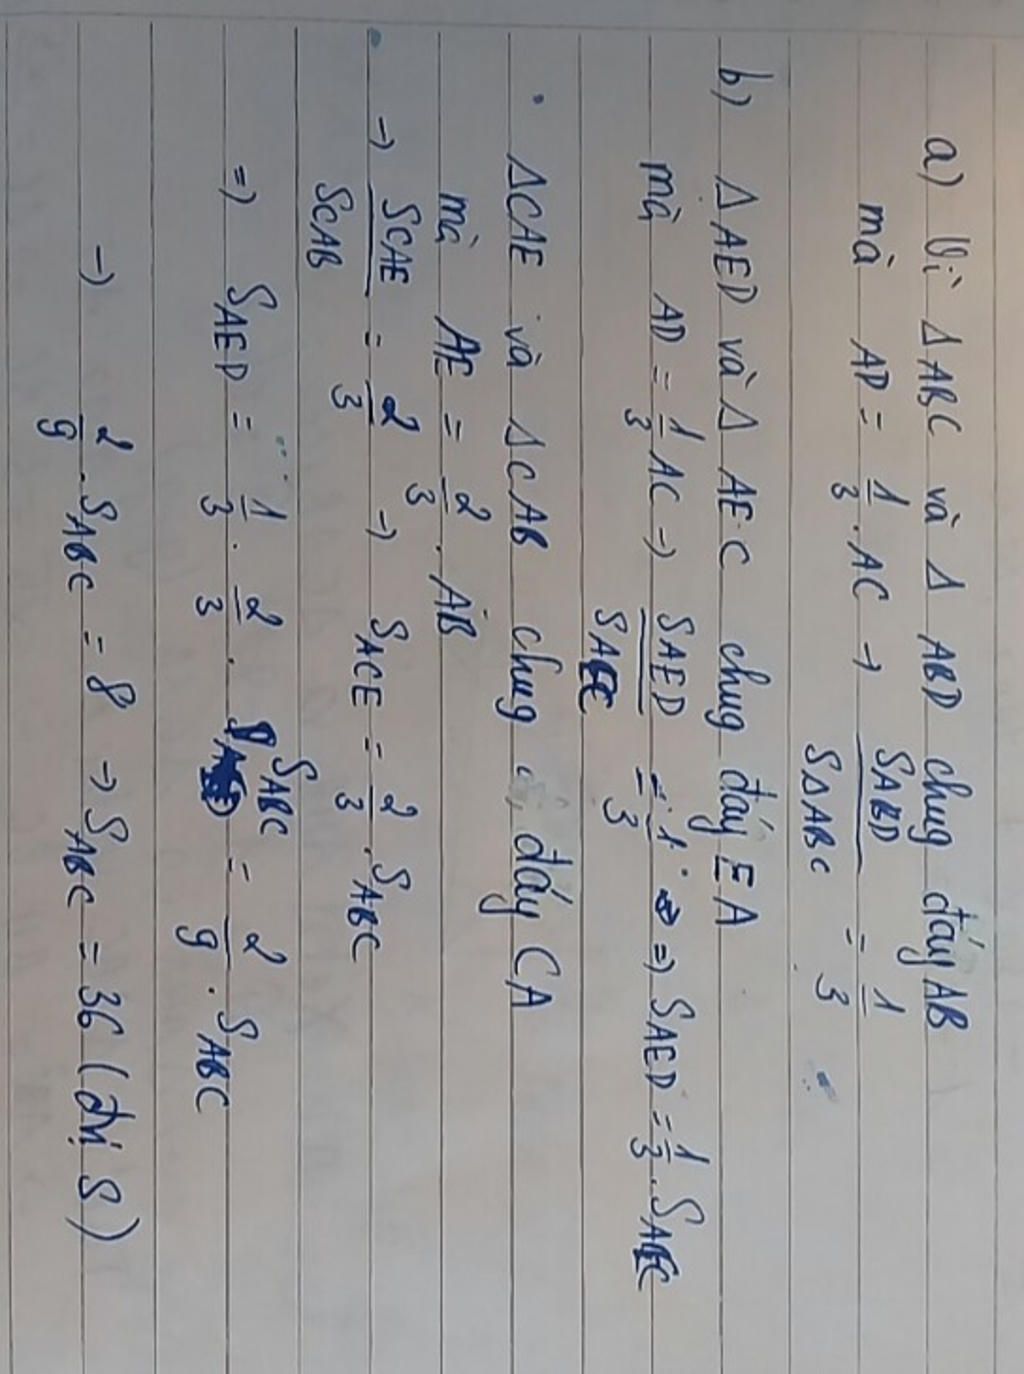 a) Vì ΔABC và Δ ABD chung đáy AB
mà AD = 1/3 . AC → SABD/SΔABC = 1/3
b) ΔAED và Δ AEC chung đáy EA
mà AD = 1/3 AC → SAED/SAEC = 1/3 => SAED = 1/3 . SAEC
. ΔCAE và ΔCAB chung đáy CA
mà AE = 2/3 . AB
→ SCAE/SCAB = 2/3 → SACE = 2/3 . SABC
=> SAED = 1/3 . 2/3 . SABC = 2/9 . SABC
→ 2/9 . SABC = 8 → SABC = 36 (đvị S)